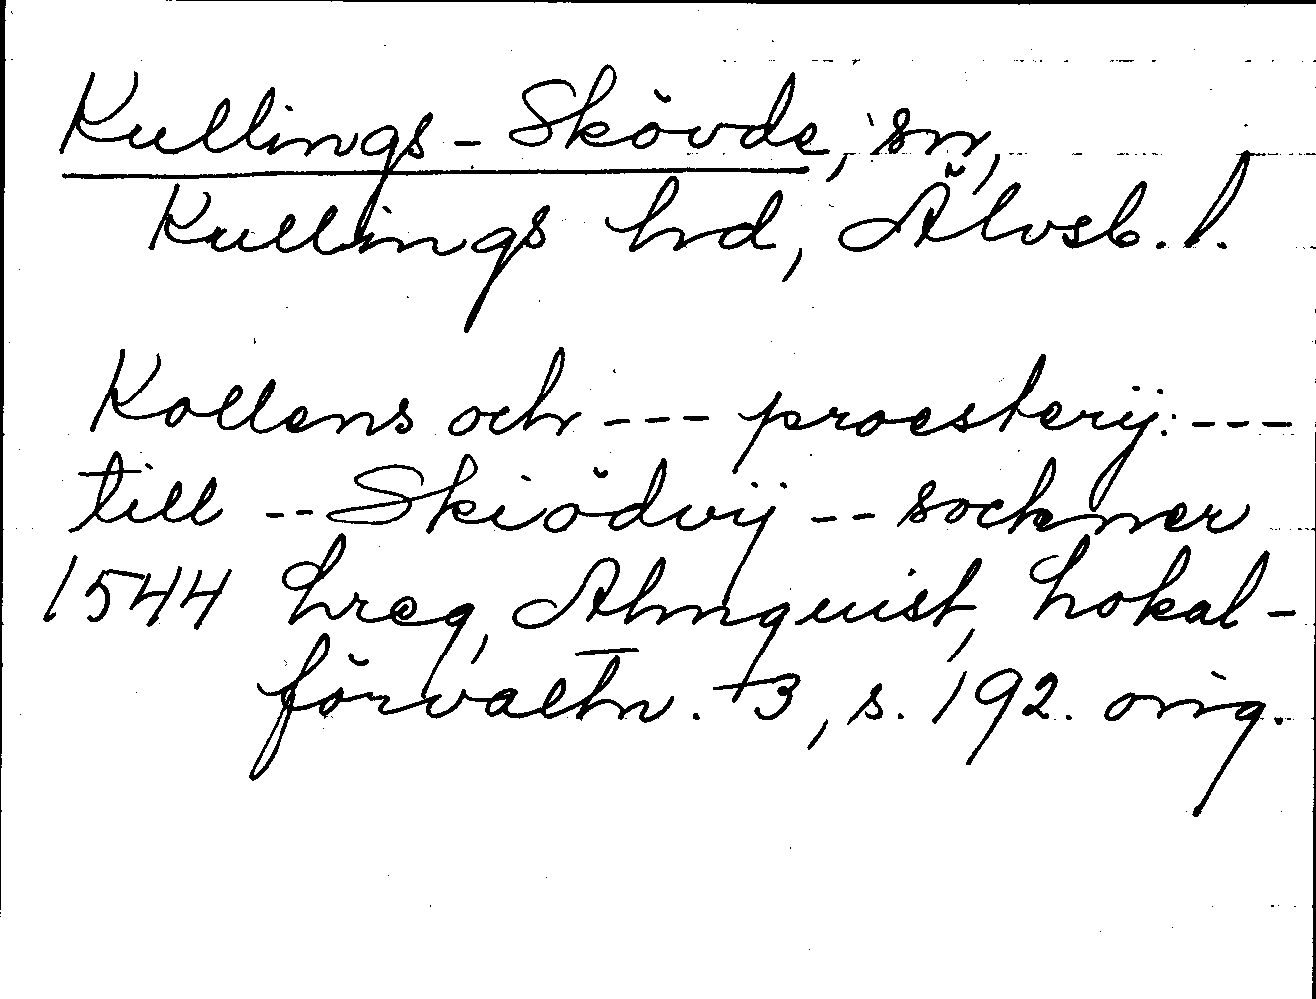 Kullings-Skövde, sn,
Kullings hd, Älvsb. l.
Kollens och --- proesterij: ---
till -- Skiödvij -- sockner
1544 hreg, Almquist, Lokal-
förvaltn. +3, s. 192. orig.